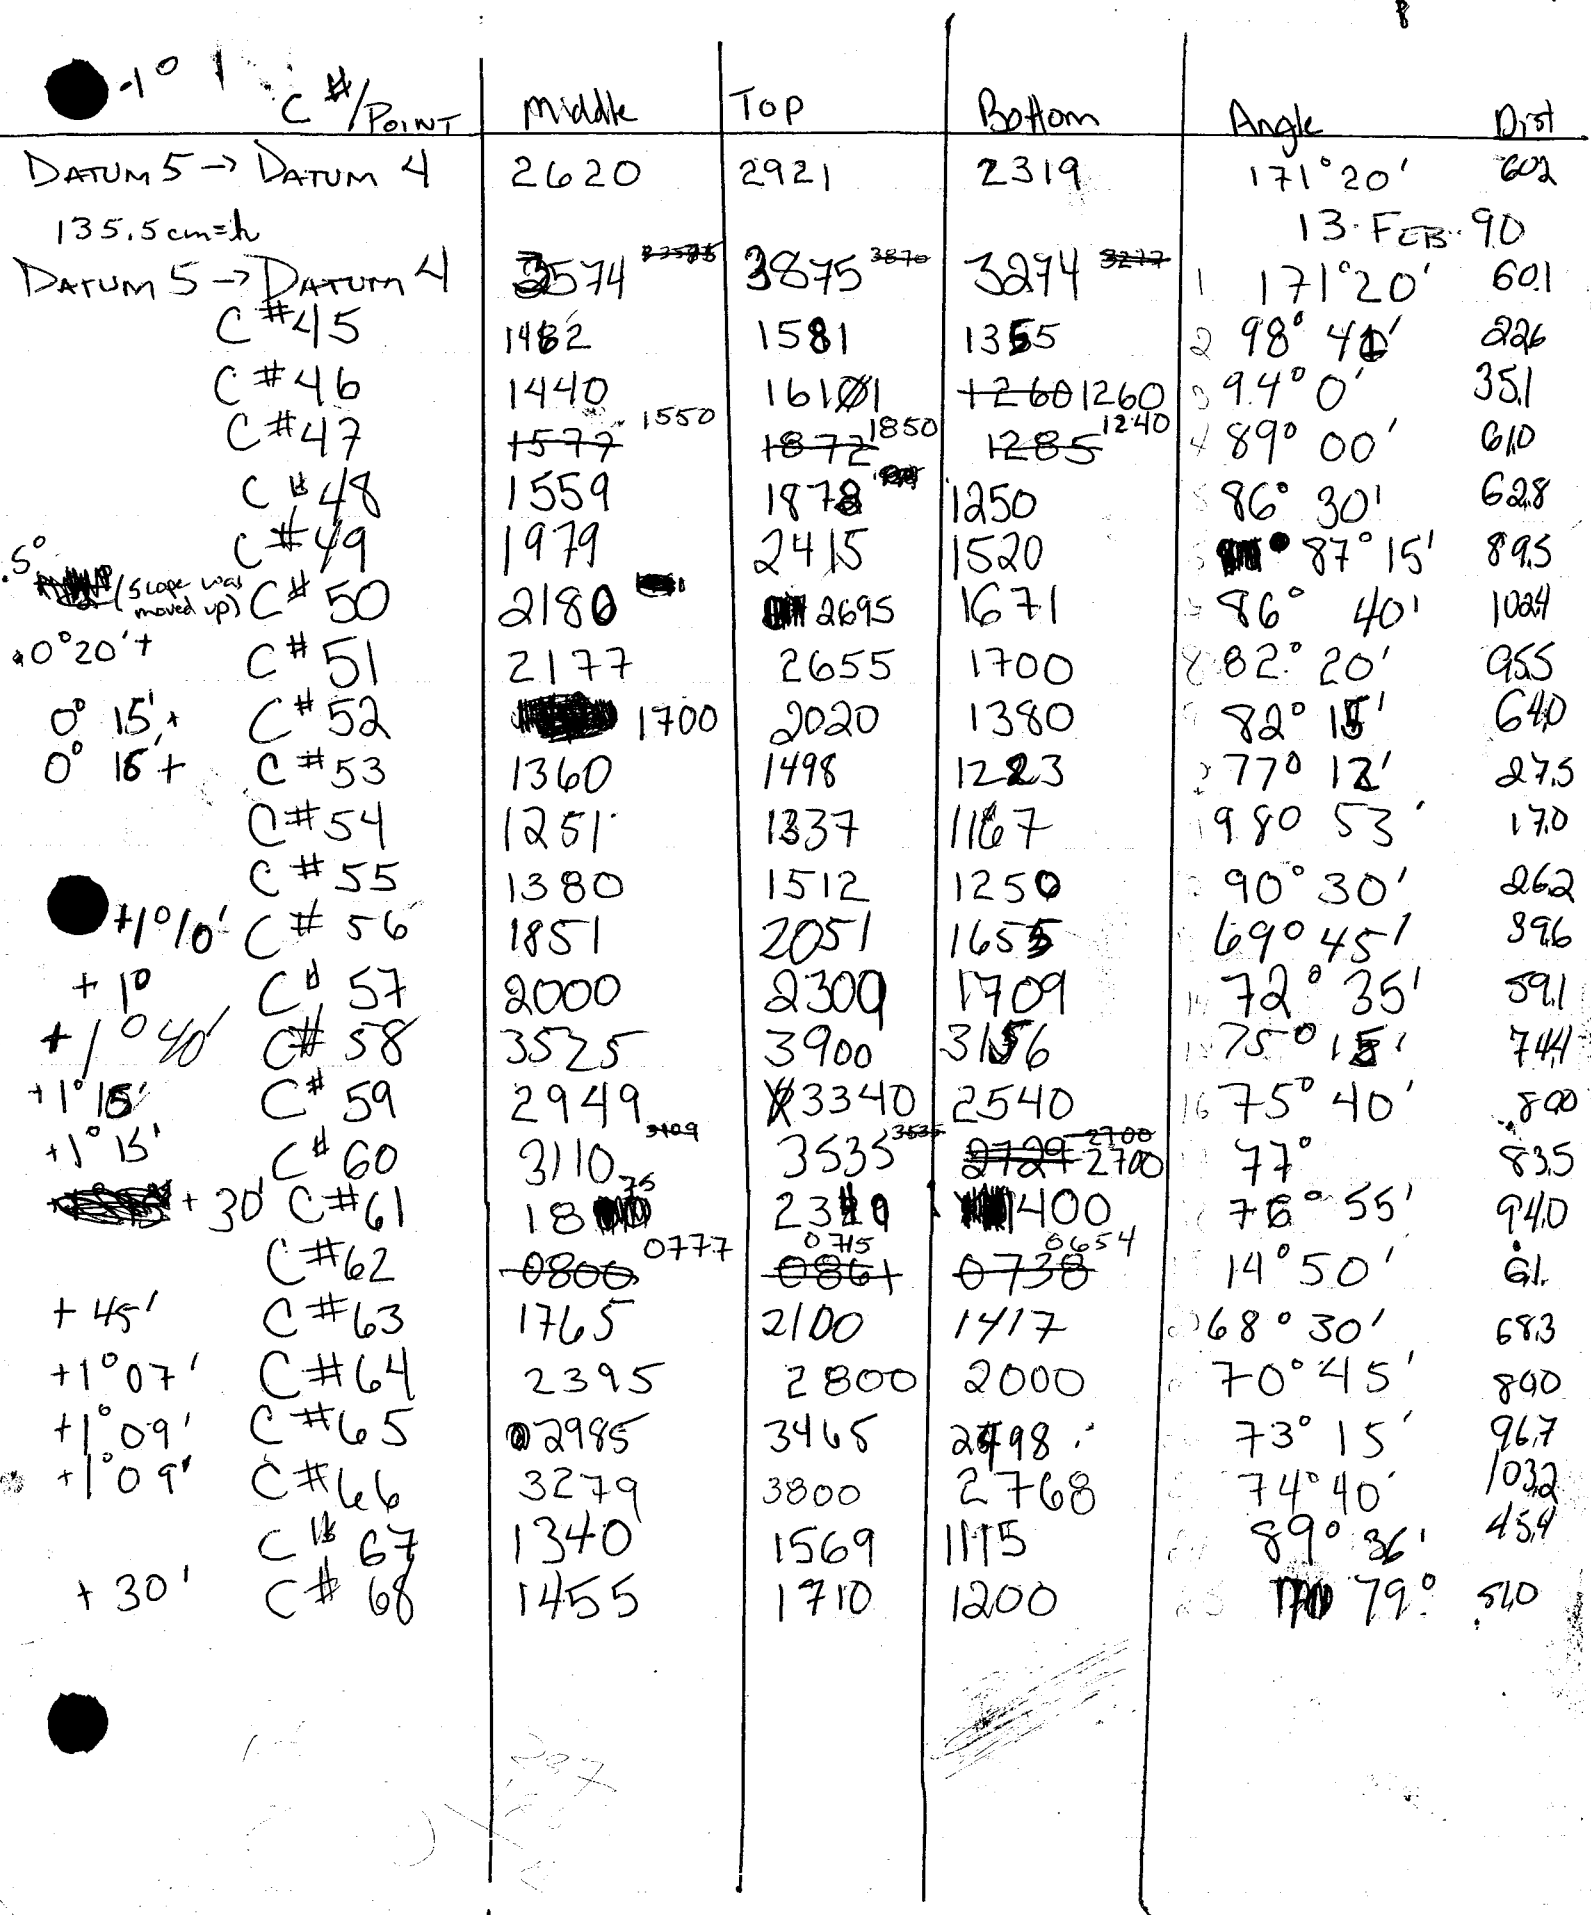 -1° 1 C#/POINT Middle Top Bottom Angle Dist
DATUM 5 → DATUM 4 2620 2921 2319 171°20' 602
135.5cm=h 13 FEB 90
DATUM 5 → DATUM 4 3574 3875 3870 3274 3277 1 171°20' 60.1
C#45 1482 1581 1355 2 98° 40' 22.6
C#46 1440 1601 1260 1260 3 94° 0' 35.1
C#47 1577 1550 1872 1850 1285 1240 4 89° 00' 61.0
C#48 1559 1878 1250 5 86° 30' 62.8
C#49 1979 2415 1520 87° 15' 89.5
.5° (Scope was moved up) C#50 2180 2695 1671 86° 40' 102.4
0°20'+ C#51 2177 2655 1700 8 82° 20' 95.5
0° 15'+ C#52 1700 2020 1380 82° 15' 64.0
0° 15'+ C#53 1360 1498 1223 77° 12' 27.5
C#54 1251 1337 1167 98° 53' 17.0
C#55 1380 1512 1250 90° 30' 26.2
+1°10' C#56 1851 2051 1655 69° 45' 39.6
+1° C#57 2000 2300 1709 14 72° 35' 59.1
+1°40' C#58 3525 3900 3156 75° 15' 74.4
+1°15' C#59 2949 3340 2540 16 75° 40' 80.0
+1°15' C#60 3110 3109 3535 3535 2729 2700 2700 77° 83.5
+30' C#61 1875 2340 1400 76° 55' 94.0
C#62 0800 0777 0861 0715 0738 0654 14° 50' 6.1
+45' C#63 1765 2100 1417 68° 30' 68.3
+1°07' C#64 2395 2800 2000 70° 45' 80.0
+1°09' C#65 2985 3465 2498 73° 15' 96.7
+1°09' C#66 3279 3800 2768 74° 40' 103.2
C#67 1340 1569 1115 89° 36' 45.4
+30' C#68 1455 1710 1200 79° 51.0